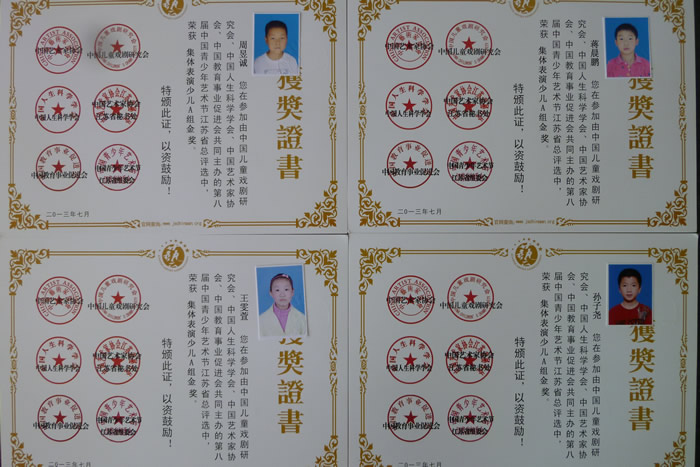 獲獎證書
周昱诚 您在参加由中国儿童戏剧研
究会、中国人生科学学会、中国艺术家协
会、中国教育事业促进会共同主办的第八
届中国青少年艺术节江苏省总评选中，
荣获 集体表演少儿A组金奖。
特颁此证，以资鼓励！
中国艺术家协会
中国儿童戏剧研究会
中国人生科学学会
中国艺术家协会
江苏省秘书处
中国教育事业促进会
中国青少年艺术节
江苏省组委会
二0一三年七月
獲獎證書
蒋晨鹏 您在参加由中国儿童戏剧研
究会、中国人生科学学会、中国艺术家协
会、中国教育事业促进会共同主办的第八
届中国青少年艺术节江苏省总评选中，
荣获 集体表演少儿A组金奖。
特颁此证，以资鼓励！
中国艺术家协会
中国儿童戏剧研究会
中国人生科学学会
中国艺术家协会
江苏省秘书处
中国教育事业促进会
中国青少年艺术节
江苏省组委会
二0一三年七月
獲獎證書
王雯萱 您在参加由中国儿童戏剧研
究会、中国人生科学学会、中国艺术家协
会、中国教育事业促进会共同主办的第八
届中国青少年艺术节江苏省总评选中，
荣获 集体表演少儿A组金奖。
特颁此证，以资鼓励！
中国艺术家协会
中国儿童戏剧研究会
中国人生科学学会
中国艺术家协会
江苏省秘书处
中国教育事业促进会
中国青少年艺术节
江苏省组委会
二0一三年七月
獲獎證書
孙子尧 您在参加由中国儿童戏剧研
究会、中国人生科学学会、中国艺术家协
会、中国教育事业促进会共同主办的第八
届中国青少年艺术节江苏省总评选中，
荣获 集体表演少儿A组金奖。
特颁此证，以资鼓励！
中国艺术家协会
中国儿童戏剧研究会
中国人生科学学会
中国艺术家协会
江苏省秘书处
中国教育事业促进会
中国青少年艺术节
江苏省组委会
二0一三年七月